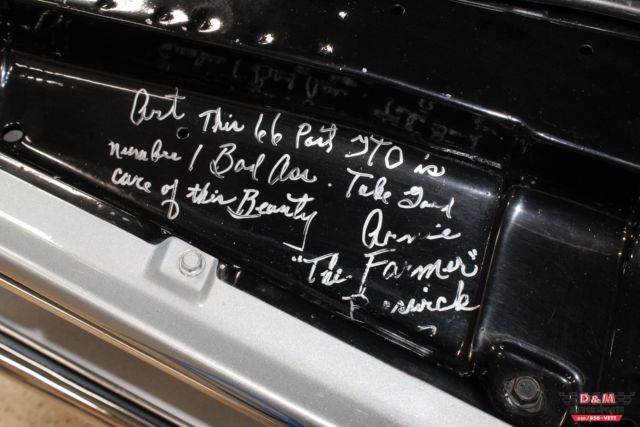 Art This 66 Pont GTO is
number 1 Bad Ass. Take Good
care of this Beauty
Arnie
"The Farmer"
Beswick
D&M
MOTORSPORTS
630/858-VETT